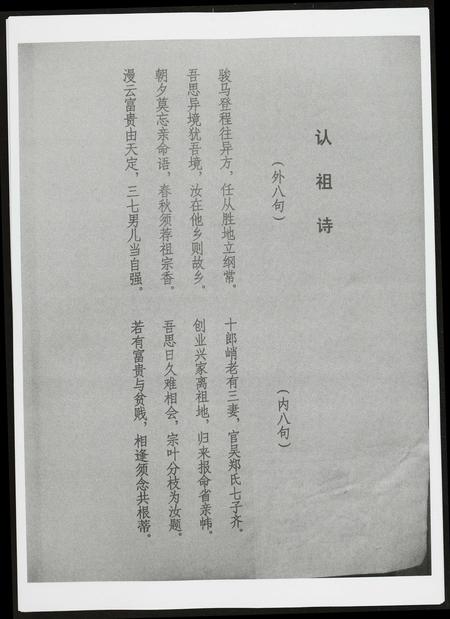 认祖诗
（外八句）
骏马登程往异方，任从胜地立纲常。
吾思异境犹吾境，汝在他乡则故乡。
朝夕莫忘亲命语，春秋须荐祖宗香。
漫云富贵由天定，三七男儿当自强。
（内八句）
十郎峭老有三妻，官吴郑氏七子齐。
创业兴家离祖地，归来报命省亲帏。
吾思日久难相会，宗叶分枝为汝题。
若有富贵与贫贱，相逢须念共根蒂。